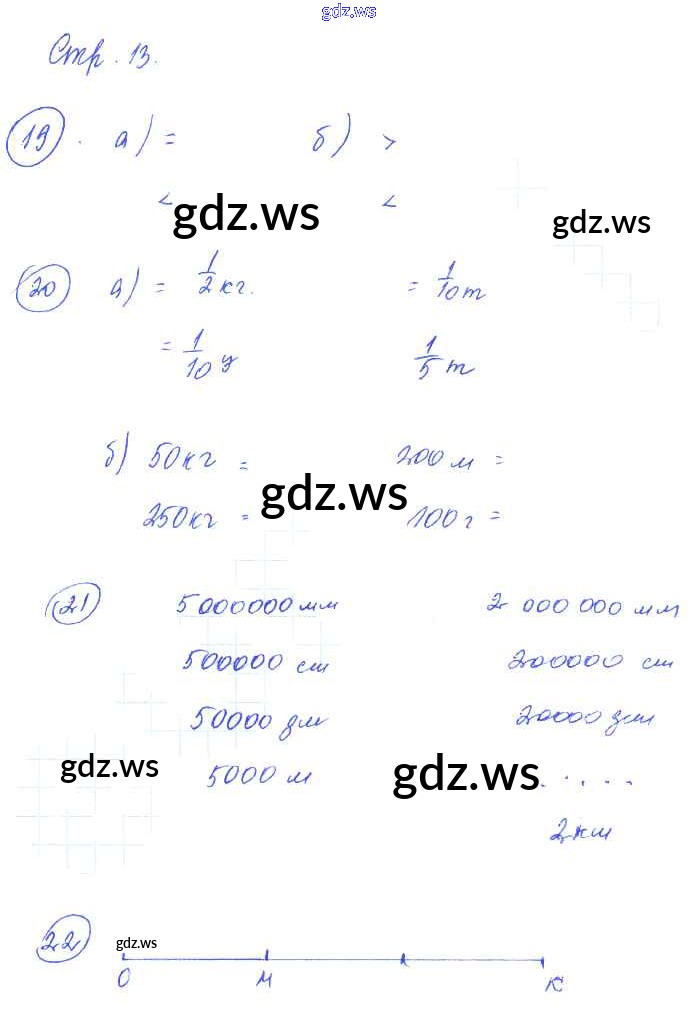 gdz.ws
Стр. 13.
19. а) = б) >
< <
gdz.ws
gdz.ws
20 а) = 1/2 кг. = 1/10 т
= 1/10 ц 1/5 т
б) 50 кг = 200 м =
gdz.ws
250 кг = 100 г =
21 5 000000 мм 2 000 000 мм
500000 см 200000 см
50000 дм 20000 дм
gdz.ws
gdz.ws
5000 м . . . . .
2 км
22
gdz.ws
О М К